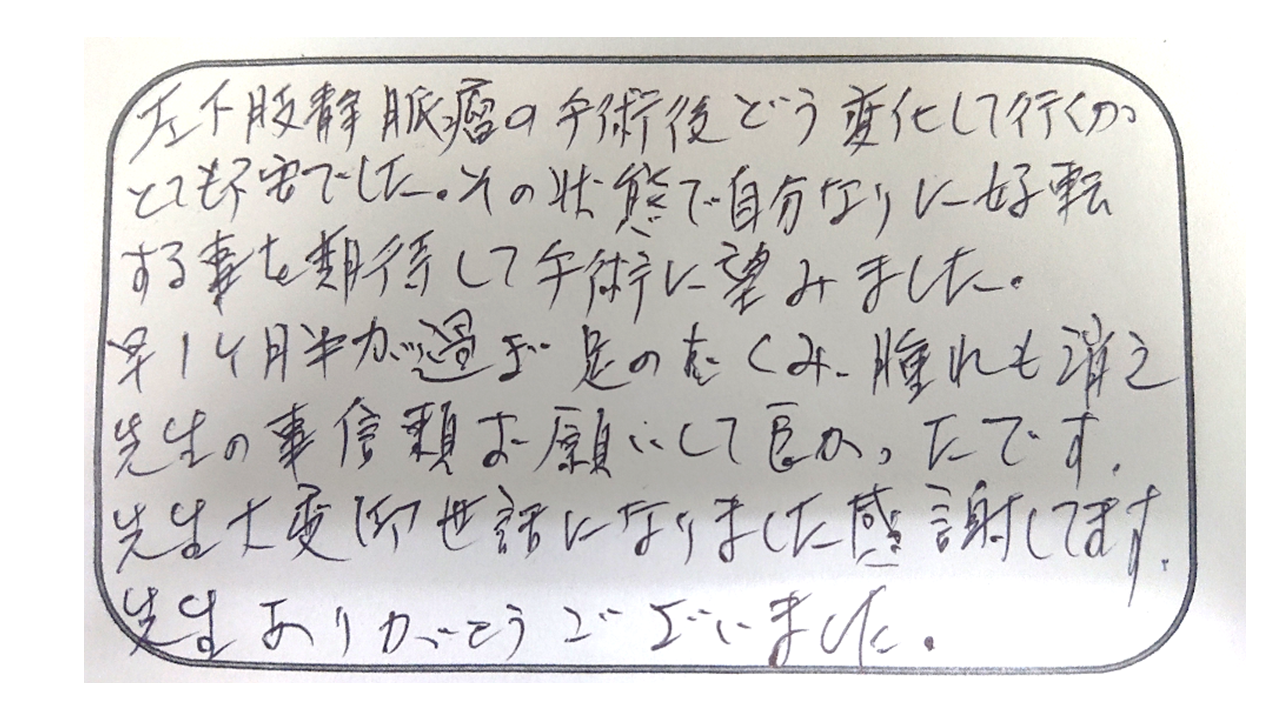 左下肢静脈瘤の手術後どう変化して行くか
とても不安でした。その状態で自分なりに好転
する事を期待して手術に望みました。
早1ヶ月半が過ぎ足のむくみ、腫れも消え
先生の事信頼お願いして良かったです。
先生大変御世話になりました感謝してます。
先生ありがとうございました。